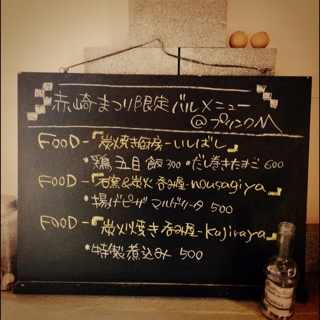 赤崎まつり限定バルメニュー
@プリンクM
FOOD-『炭焼き厨房-いしばし』
・鶏五目飯 300 ・だし巻きたまご 600
FOOD-『石窯&炭火 呑み屋-nousagiya』
・揚げピザ マルゲリータ 500
FOOD-『炭火焼き 呑み屋-kujiraya』
・特製煮込み 500